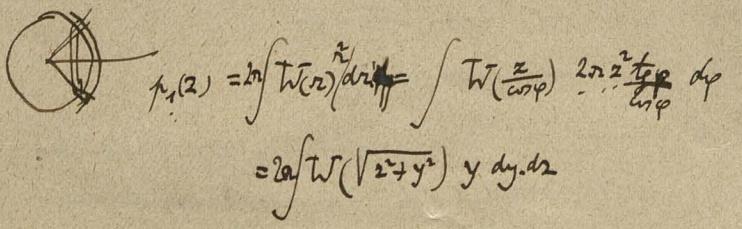 p₁(z) = 2π ∫ W(r) r dr = ∫ W(z/cosφ) 2π z² tgφ/cosφ dφ
= 2π ∫ W(√(z²+y²)) y dy.dz